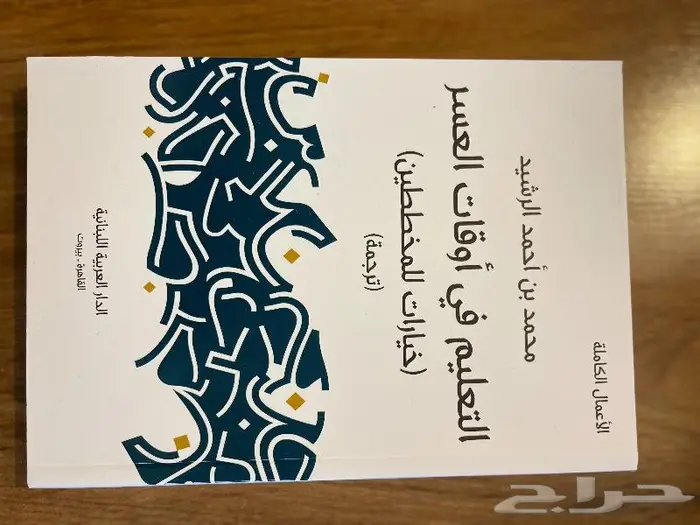 الأعمال الكاملة
محمد بن أحمد الرشيد
التعليم في أوقات العسر
(خيارات للمخططين)
(ترجمة)
الدار العربية اللبنانية
القاهرة - بيروت
حراج